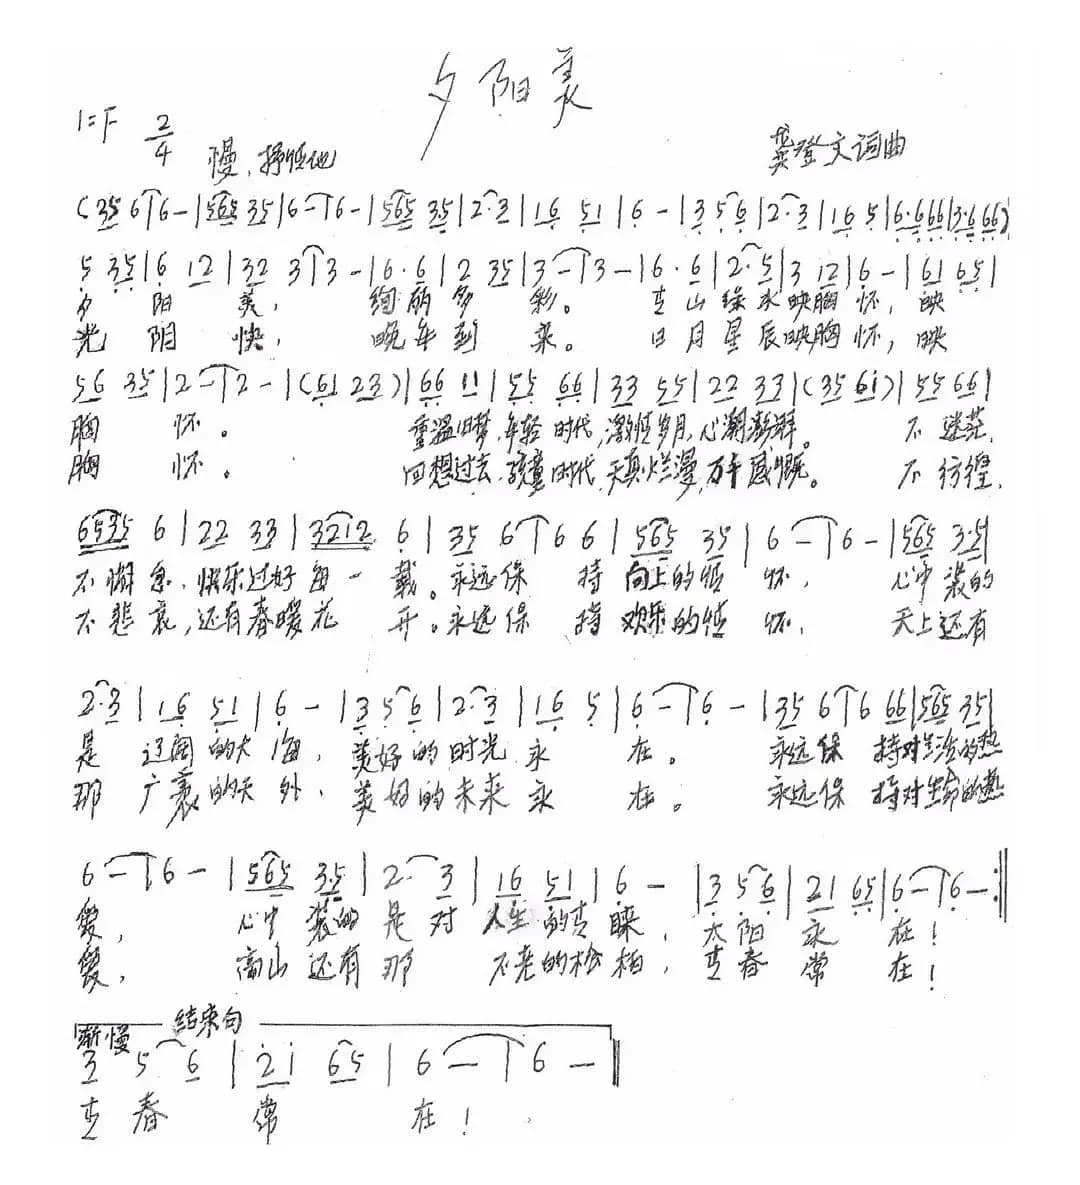 夕阳美
1=F 2/4 慢,抒情地 龚登文词曲
(35 6|6-|565 35|6-|6-|565 35|2·3|16 51|6-|3 5 6|2·3|16 5|6·666|3·666)
5 35|6 12|32 3|3-|6·6|2 35|3-|3-|6·6|2·5|3 12|6-|61 65|
夕 阳 美, 绚丽多 彩。 青山绿水映胸怀,映
光 阴 快, 晚年到 来。 日月星辰映胸怀,映
56 35|2-|2-|(61 23)|66 11|55 66|33 55|22 33|(35 61)|55 66|
胸 怀。 重温旧梦,年轻时代,激情岁月,心潮澎湃。 不迷茫,
胸 怀。 回想过去,孩童时代,天真烂漫,万千感慨。 不彷徨,
6535 6|22 33|3212 6|35 6|6 6|565 35|6-|6-|565 3·5|
不懈怠,快乐过好每一载。永远保 持 向上的情 怀, 心中装的
不悲哀,还有春暖花 开。永远保 持 欢乐的情 怀, 天上还有
2·3|16 51|6-|3 5 6|2·3|16 5|6-|6-|35 6|6 66|565 35|
是 辽阔的大海,美好的时光永 在。 永远保 持对生活的热
那 广袤的天外,美好的未来永 在。 永远保 持对生命的热
6-|6-|565 3·5|2· 3|16 51|6-|3 5 6|21 65|6-|6-:||
爱, 心中装的是对人生的青睐,太阳永 在!
爱, 高山还有那 不老的松柏,青春常 在!
渐慢 结束句
3 5 6|21 65|6-|6-||
青春 常 在!